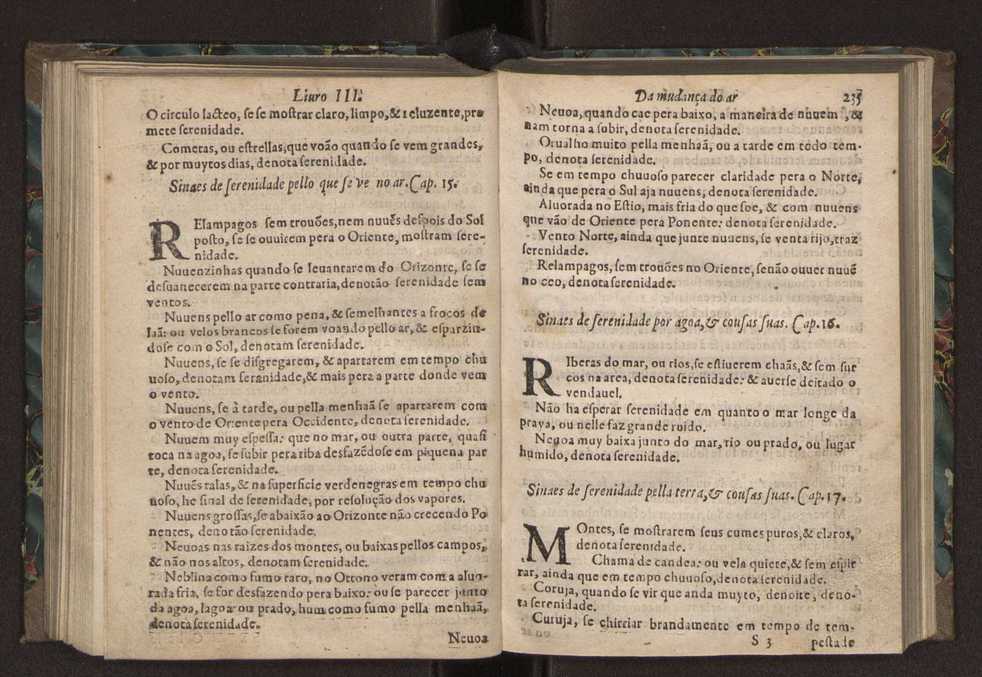 Liuro III.
O circulo lacteo, se se mostrar claro, limpo, & reluzente, pro
mete serenidade.
Cometas, ou estrellas, que voão quando se vem grandes,
& por muytos dias, denota serenidade.
Sinaes de serenidade pello que se ve no ar. Cap. 15.
RElampagos sem trouões, nem nuuẽs despois do Sol
posto, se se ouuirem pera o Oriente, mostram sere-
nidade.
Nuuenzinhas quando se leuantarem do Orizonte, se se
desuanecerem na parte contraria, denotão serenidade sem
ventos.
Nuuens pello ar como pena, & semelhantes a frocos de
laã: ou velos brancos se forem voando pello ar, & esparzin-
dose com o Sol, denotam serenidade.
Nuuens, se se disgregarem, & apartarem em tempo chu
uoso, denotam serenidade, & mais pera a parte donde vem
o vento.
Nuuens, se à tarde, ou pella menhaã se apartarem com
o vento de Oriente pera Occidente, denota serenidade.
Nuuem muy espessa: que no mar, ou outra parte, quasi
toca na agoa, se subir pera riba desfazẽdose em piquena par
te, denota serenidade.
Nuuẽs ralas, & na superficie verdenegras em tempo chu
uoso, he sinal de serenidade, por resolução dos vapores.
Nuuens grossas, se abaixão ao Orizonte não crecendo Po
nentes, denotão serenidade.
Neuoas nas raizes dos montes, ou baixas pellos campos,
& não nos altos, denotam serenidade.
Neblina como fumo raro, no Ottono veram com a aluo-
rada fria, se for desfazendo pera baixo: ou se parecer junto
da agoa, lagoa: ou prado, hum como fumo pella menhaã,
denota serenidade.
Neuoa
Da mudança do ar 235
Neuoa, quando cae pera baixo, a maneira de nuuem, &
nam torna a subir, denota serenidade.
Orualho muito pella menhaã, ou a tarde em todo tem-
po, denota serenidade.
Se em tempo chuuoso parecer claridade pera o Norte,
ainda que pera o Sul aja nuuens, denota serenidade.
Aluorada no Estio, mais fria do que soe, & com nuuens
que vão de Oriente pera Ponente: denota serenidade.
Vento Norte, ainda que junte nuuens, se venta rijo, traz
serenidade.
Relampagos, sem trouões no Oriente, senão ouuer nuuẽ
no ceo, denota serenidade.
Sinaes de serenidade por agoa, & cousas suas. Cap. 16.
RIberas do mar, ou rios, se estiuerem chaãs, & sem sur
cos na area, denota serenidade: & auerse deitado o
vendauel.
Não ha esperar serenidade em quanto o mar longe da
praya, ou nelle faz grande ruido.
Neuoa muy baixa junto do mar, rio ou prado, ou lugar
humido, denota serenidade.
Sinaes de serenidade pella terra, & cousas suas. Cap. 17.
MOntes, se mostrarem seus cumes puros, & claros,
denota serenidade.
Chama de candea: ou vela quiete, & sem espir
rar, ainda que em tempo chuuoso, denota serenidade.
Coruja, quando se vir que anda muyto, de noite, deno-
ta serenidade.
Curuja, se chirriar brandamente em tempo de tem-
S 3 pestade